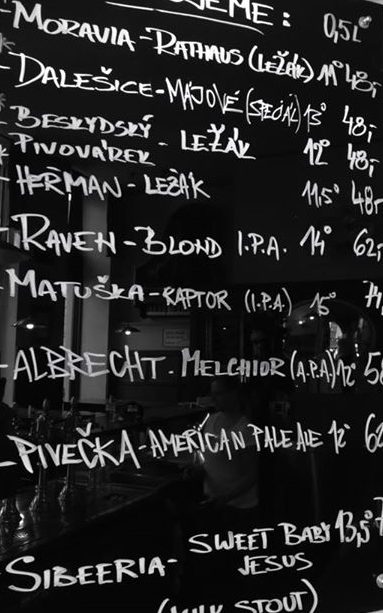 UJEME: 0,5L
- MORAVIA - RATHAUS (LEŽÁK) 11° 48,-
- DALEŠICE - MAJOVÉ (SPECIÁL) 13° 48,-
* BESKYDSKÝ
* PIVOVÁREK - LEŽÁK 12° 48,-
- HEŘMAN - LEŽÁK 11,5° 48,-
- RAVEN - BLOND I.P.A. 14° 62,-
- MATUŠKA - RAPTOR (I.P.A.) 15°
- ALBRECHT - MELCHIOR (A.P.A.) 12° 5
- PIVEČKA - AMERICAN PALE ALE 12° 6
SIBEERIA - SWEET BABY 13,5° 7
JESUS
(MILK STOUT)